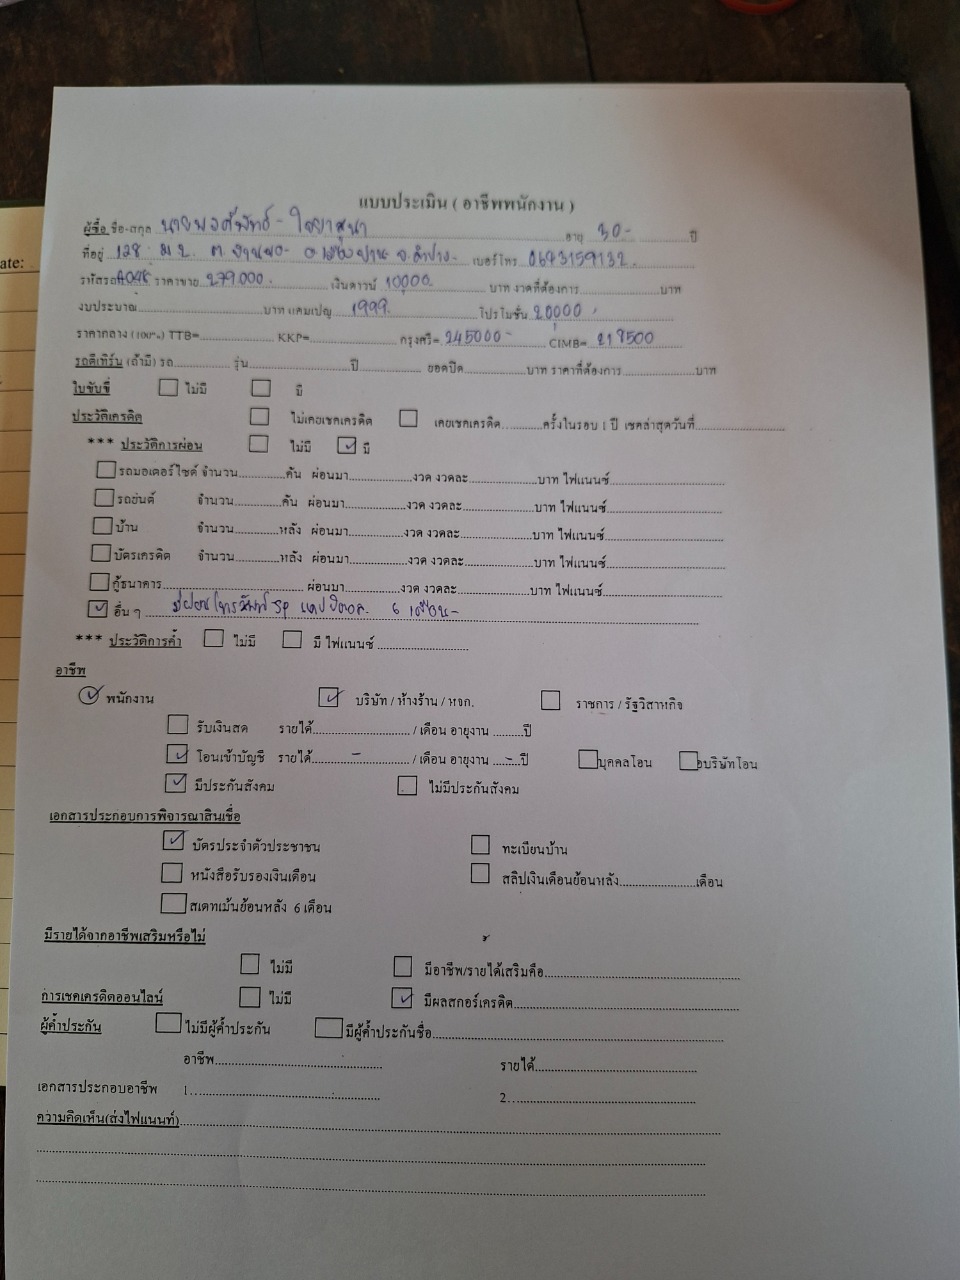 ate:
แบบประเมิน ( อาชีพพนักงาน )
ผู้ซื้อ ชื่อ-สกุล นายพงศ์พัทธ์ - ใจยาสูนา อายุ 30- ปี
ที่อยู่ 128 ม 2 ต. บ้านขอ- อ.เมืองปาน จ.ลำปาง- เบอร์โทร 0643159132.
รหัสรถ A098 ราคาขาย 279,000. เงินดาวน์ 10,000 บาท งวดที่ต้องการ บาท
งบประมาณ บาท แคมเปญ 1999. โปรโมชั่น 20,000
ราคากลาง (100%) TTB= KKP= กรุงศรี= 245000- CIMB= 217500
รถตีเทิร์น (ถ้ามี) รถ รุ่น ปี ยอดปิด บาท ราคาที่ต้องการ บาท
ใบขับขี่ ไม่มี มี
ประวัติเครดิต ไม่เคยเชคเครดิต เคยเชคเครดิต ครั้งในรอบ 1 ปี เชคล่าสุดวันที่
*** ประวัติการผ่อน ไม่มี มี
รถมอเตอร์ไซต์ จำนวน คัน ผ่อนมา งวด งวดละ บาท ไฟแนนซ์
รถยนต์ จำนวน คัน ผ่อนมา งวด งวดละ บาท ไฟแนนซ์
บ้าน จำนวน หลัง ผ่อนมา งวด งวดละ บาท ไฟแนนซ์
บัตรเครดิต จำนวน หลัง ผ่อนมา งวด งวดละ บาท ไฟแนนซ์
กู้ธนาคาร ผ่อนมา งวด งวดละ บาท ไฟแนนซ์
อื่น ๆ มีผ่อนโทรศัพท์ 6 เดือน-
*** ประวัติการค้ำ ไม่มี มี ไฟแนนซ์
อาชีพ
พนักงาน บริษัท / ห้างร้าน / หจก. ราชการ / รัฐวิสาหกิจ
รับเงินสด รายได้ / เดือน อายุงาน ปี
โอนเข้าบัญชี รายได้ - / เดือน อายุงาน - ปี บุคคลโอน บริษัทโอน
มีประกันสังคม ไม่มีประกันสังคม
เอกสารประกอบการพิจารณาสินเชื่อ
บัตรประจำตัวประชาชน ทะเบียนบ้าน
หนังสือรับรองเงินเดือน สลิปเงินเดือนย้อนหลัง เดือน
สเตทเม้นย้อนหลัง 6 เดือน
มีรายได้จากอาชีพเสริมหรือไม่
ไม่มี มีอาชีพ/รายได้เสริมคือ
การเชคเครดิตออนไลน์ ไม่มี มีผลสกอร์เครดิต
ผู้ค้ำประกัน ไม่มีผู้ค้ำประกัน มีผู้ค้ำประกันชื่อ
อาชีพ รายได้
เอกสารประกอบอาชีพ 1 2
ความคิดเห็น(ส่งไฟแนนท์)